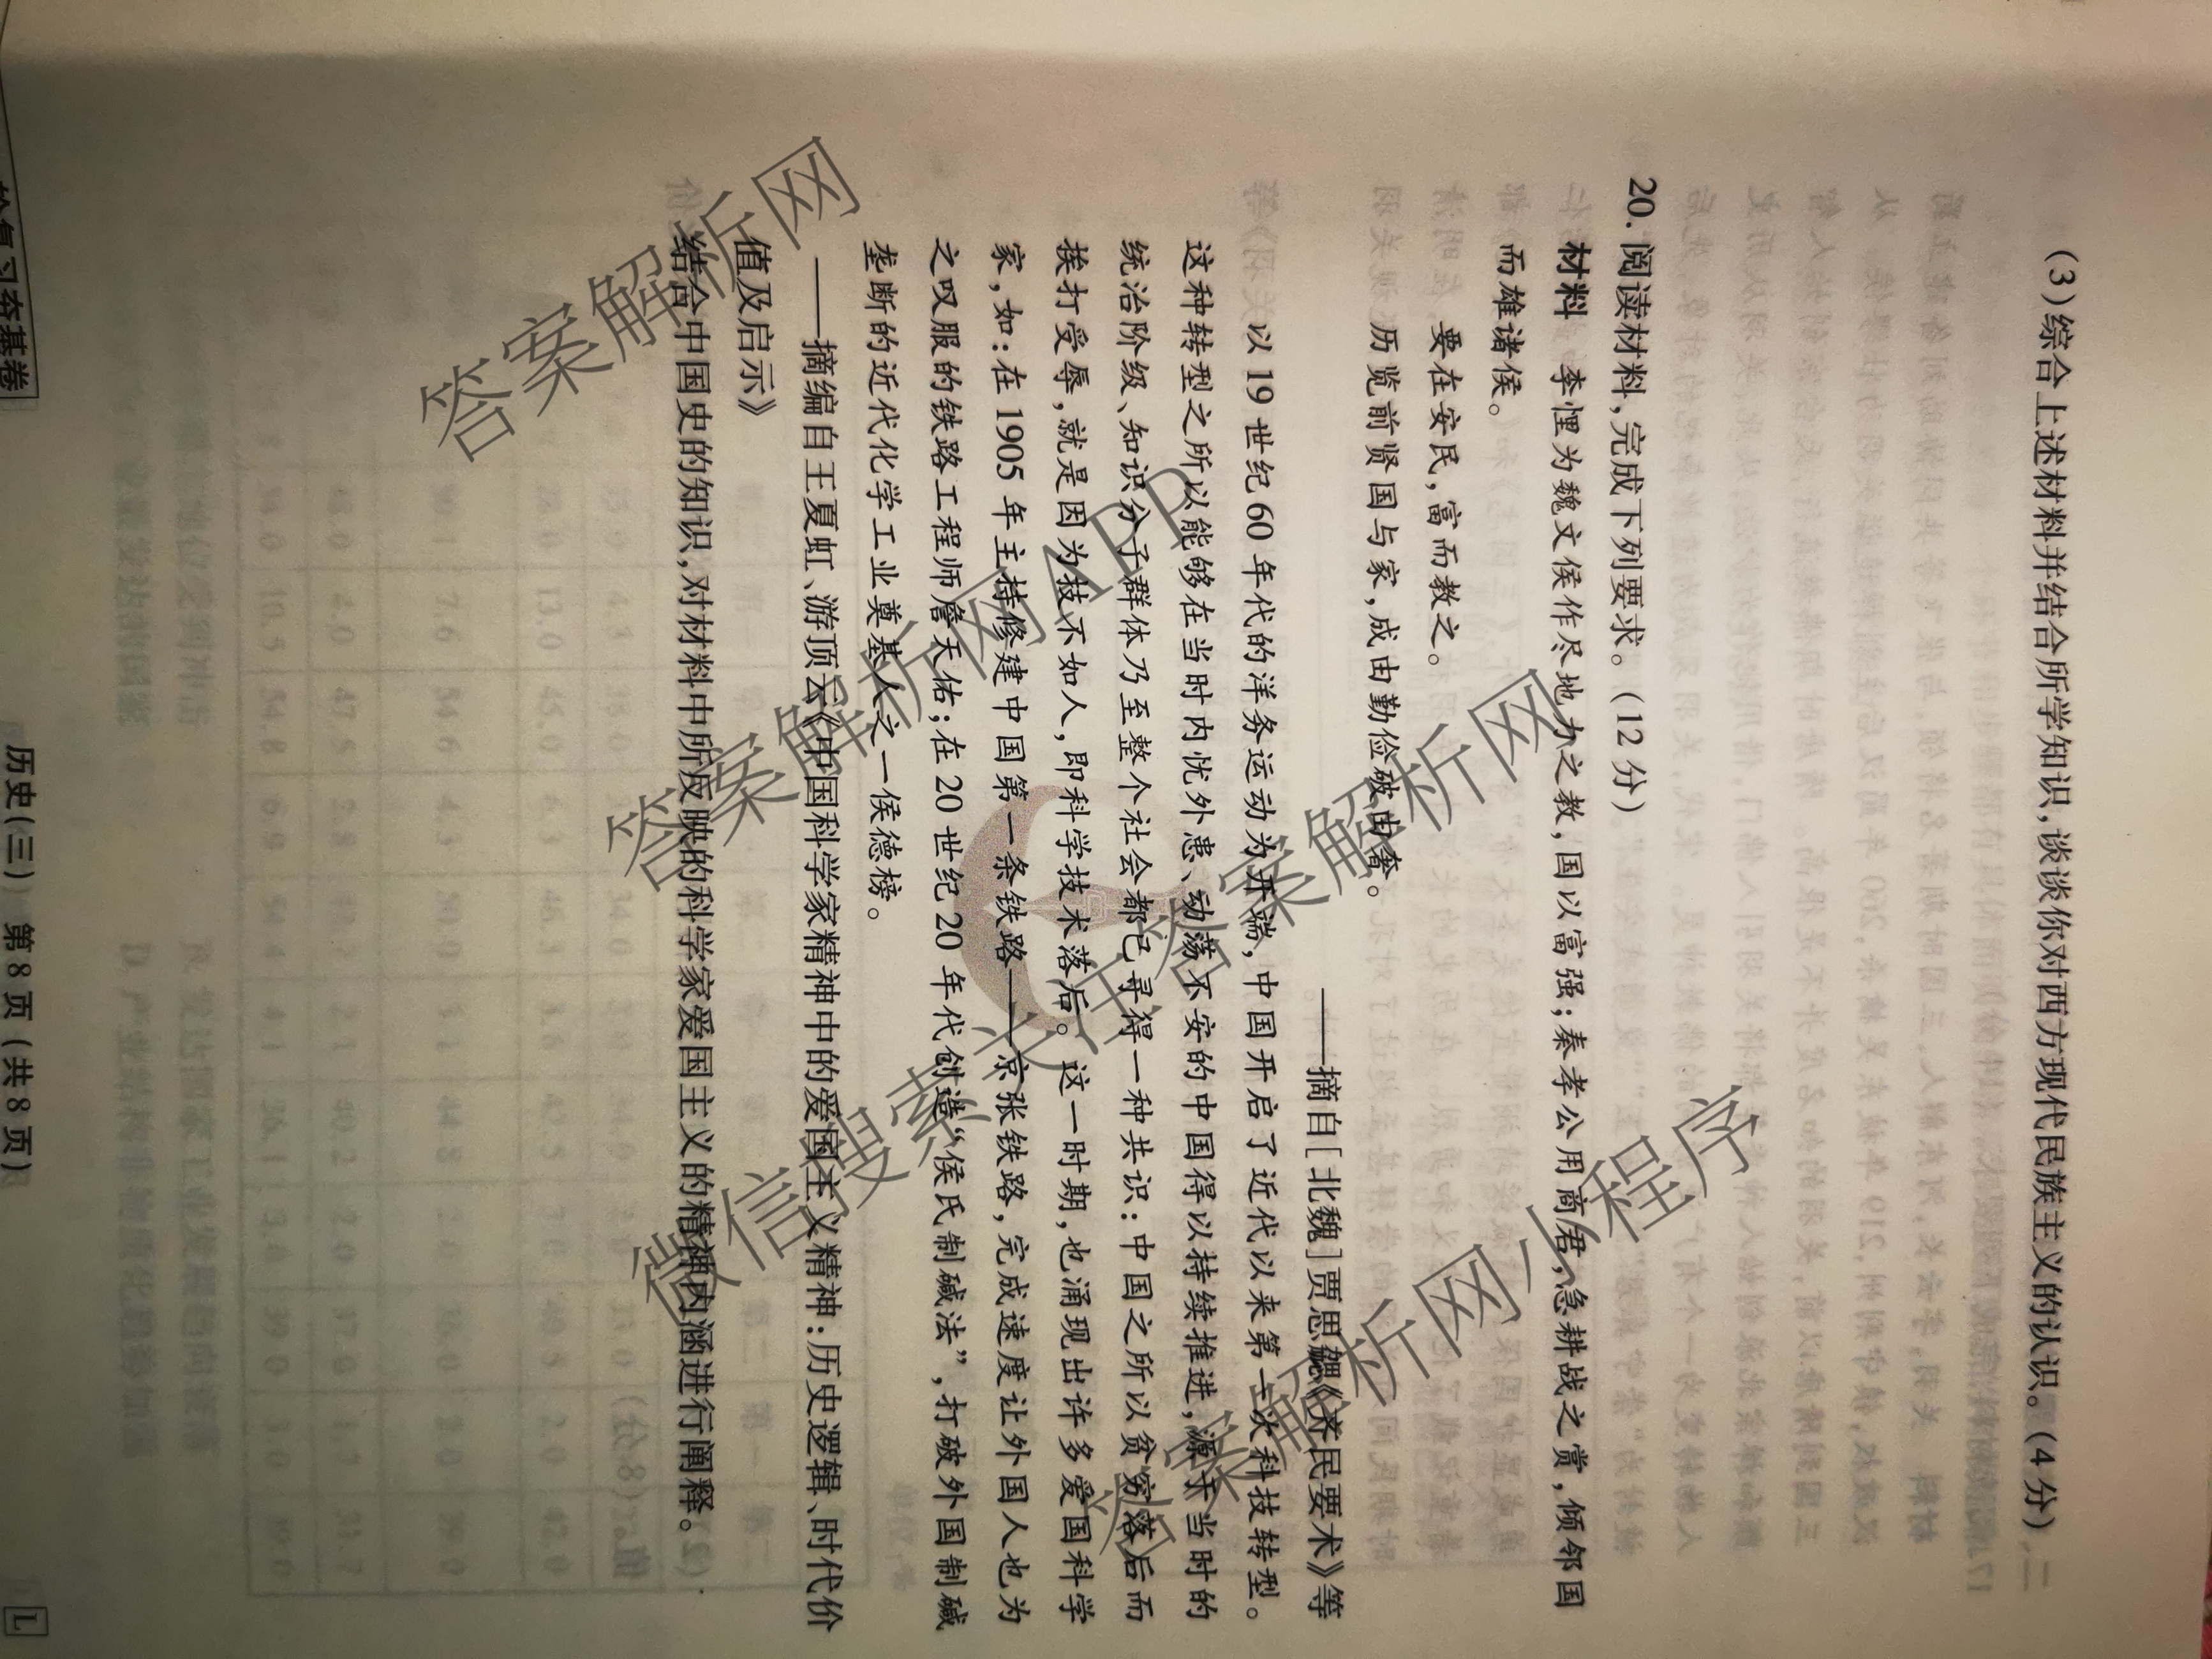 (3)综合上述材料并结合所学知识,谈谈你对西方现代民族主义的认识。(4分)
20.阅读材料,完成下列要求。(12分)
材料 李悝为魏文侯作尽地力之教,国以富强;秦孝公用商君,急耕战之赏,倾邻国
而雄诸侯。
要在安民,富而教之。
历览前贤国与家,成由勤俭破由奢。
——摘自[北魏]贾思勰《齐民要术》等
以19世纪60年代的洋务运动为开端,中国开启了近代以来第一次科技转型。
这种转型之所以能够在当时内忧外患、动荡不安的中国得以持续推进,源于当时的
统治阶级、知识分子群体乃至整个社会都已寻得一种共识:中国之所以贫穷落后而
挨打受辱,就是因为技不如人,即科学技术落后。这一时期,也涌现出许多爱国科学
家,如:在1905年主持修建中国第一条铁路——京张铁路,完成速度让外国人也为
之叹服的铁路工程师詹天佑;在20世纪20年代创造“侯氏制碱法”,打破外国制碱
垄断的近代化学工业奠基人之一侯德榜。
——摘编自王夏虹、游顶云《中国科学家精神中的爱国主义精神:历史逻辑、时代价
值及启示》
结合中国史的知识,对材料中所反映的科学家爱国主义的精神内涵进行阐释。
历史(三) 第8页(共8页)
L
轮复习夯基卷
答案解析网
答案解析网APP
答案解析网
微信搜索
答案解析网小程序